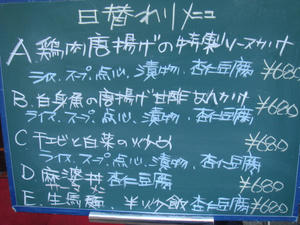 日替わりメニュー
A 鶏肉唐揚げの特製ソースかけ
ライス、スープ、点心、漬物、杏仁豆腐 ¥680
B. 白身魚の唐揚げ甘酢あんかけ ¥680
ライス、スープ、点心、漬物、杏仁豆腐
C 干エビと白菜の ¥680
ライス、スープ、点心、漬物、杏仁豆腐
D 麻婆丼 杏仁豆腐 ¥680
E. 生馬麺、半炒飯 杏仁豆腐 ¥680